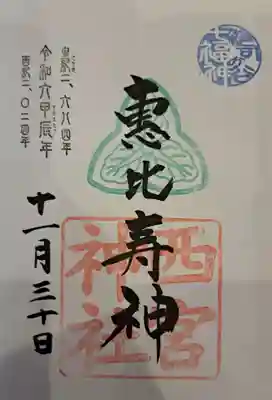 七福神
惠比寿神
西宮
神社
皇紀二、六八四年
令和六甲辰年
西紀二、〇二四年
十一月三十日